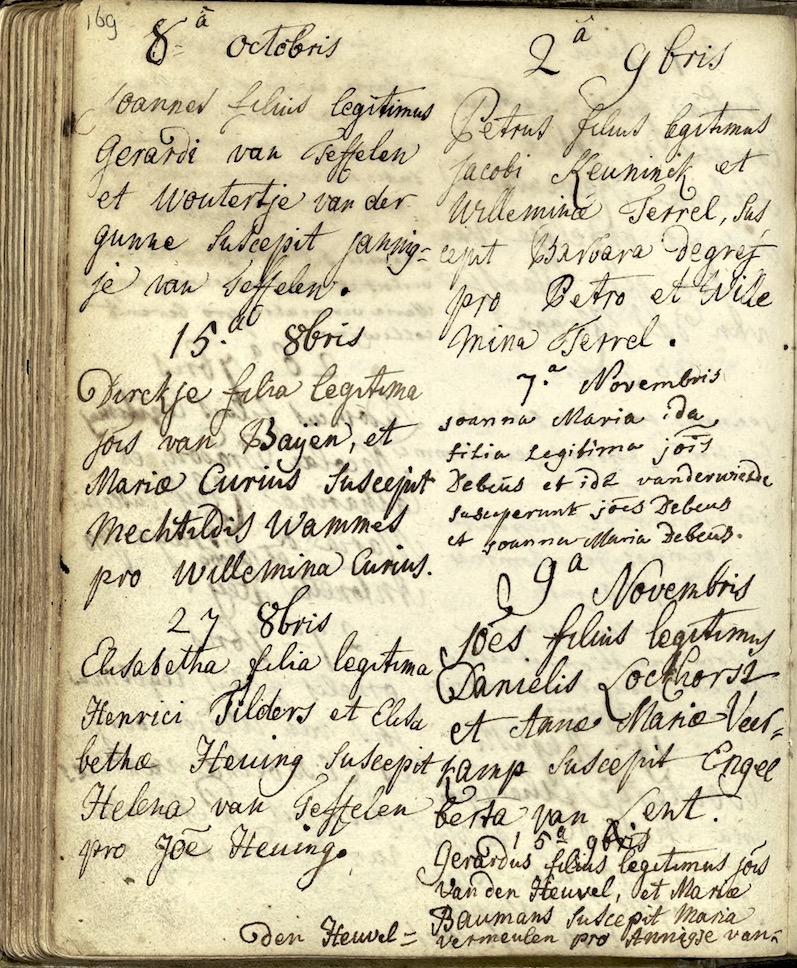 169
8-â octobris
Joannes filius legitimus
Gerardi van Teffelen
et Woutertje van der
gunne suscepit Jannig=
je van Teffelen.
15.â 8bris
Dirckje filia legitima
jois van Baÿen, et
Mariæ Curius suscepit
Mechtildis Wammes
pro Willemina Curius.
27 8bris
Elisabetha filia legitima
Henrici Tilders et Elisa
bethæ Heuing suscepit
Helena van Teffelen
pro Jōe Heuing.
2â 9bris
Petrus filius legitimus
Jacobi Keuninck et
Willeminæ Terrel, sus
cepit Barbara Degref
pro Petro et Wille
mina Terrel.
7.a Novembris
Joanna Maria ida
filia Legitima jōis
Debeus et idæ vanderweide
susceperunt jōes Debeus
et Joanna Maria Debeus.
9a Novembris
Jōes filius legitimus
Danielis Lockhorst
et Annæ Mariæ Veer=
kamp suscepit Engel
berta van Lent.
15a 9bris
Gerardus filius legitimus jōis
van den Heuvel, et Mariæ
Baumans suscepit Maria
vermeulen pro Annigje van=
den Heuvel=